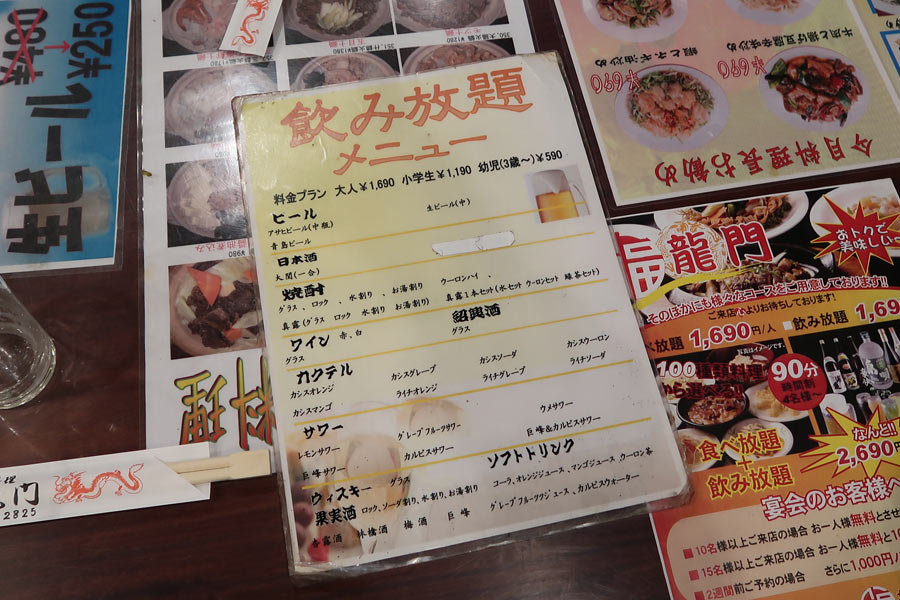 飲み放題
メニュー
料金プラン 大人¥1,690 小学生¥1,190 幼児(3歳〜)¥590
ビール
アサヒビール(中瓶) 生ビール(中)
青島ビール
日本酒
大関(一合)
焼酎
グラス、ロック、水割り、お湯割り ウーロンハイ、
真露(グラス ロック 水割り お湯割り) 真露1本セット(水セット ウーロンセット 緑茶セット)
ワイン 赤、白 紹興酒
グラス グラス
カクテル
カシスオレンジ カシスグレープ カシスソーダ カシスウーロン
カシスマンゴ ライチオレンジ ライチグレープ ライチソーダ
サワー
レモンサワー グレープフルーツサワー ウメサワー
巨峰サワー カルピスサワー 巨峰&カルピスサワー
ウィスキー ソフトドリンク
ロック、ソーダ割り、水割り、お湯割り コーラ、オレンジジュース、マンゴジュース、ウーロン茶
果実酒 グレープフルーツジュース、カルピスウォーター
杏露酒 林檎酒 梅酒 巨峰
¥400→¥250
生ビール
醤油煮込み
¥980
門
2825
蝦とネギ油炒め
¥690
¥690
今月料理長お勧め
龍門
おトクで
美味しい
そのほかにも様々なコースをご用意しております!
ご来店心よりお待ちしております!
べ放題 1,690円/人 ■飲み放題 1,69
写真はイメージです。
100種類料理
から選べる!
90分
時間制
4名様〜
食べ放題
+
飲み放題
なんと!!
2,690円
宴会のお客様へ
■10名様以上ご来店の場合 お一人様無料とさせ
■15名様以上ご来店の場合 お一人様無料と10
■2週間前ご予約の場合 さらに1,000円